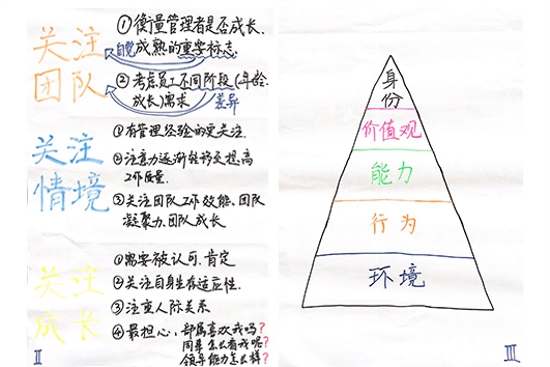 关注
团队
①衡量管理者是否成长、
自觉 成熟的重要标志.
②考虑员工不同阶段(年龄.
成长)需求 差异
关注
情境
①有管理经验的更关注.
②注意力逐渐转移至提高
工作质量.
③关注团队工作效能、团队
凝聚力.团队成长
关注
成长
①需要被认可.肯定
②关注自身生存适应性.
③注重人际关系
④最担心,部属喜欢我吗?
同事怎么看我呢?
领导能力怎么样?
II
身
份
价值观
能力
行为
环境
III